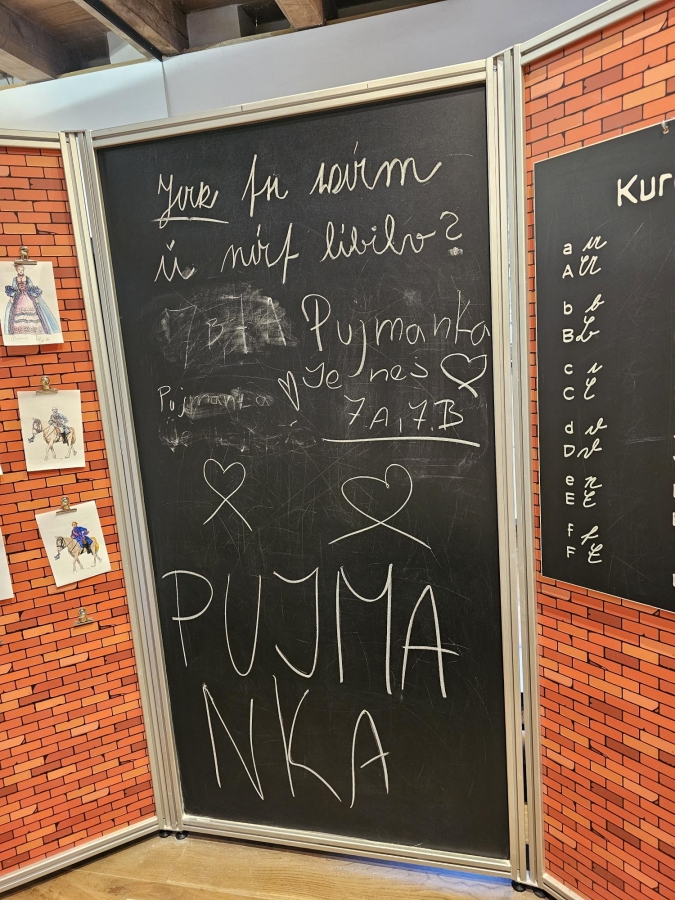 Jak se vám
u nás líbilo?
7 B A
Pujmanka
Je neš
Pujmanka
7.A, 7.B
PUJMA
NKA
Kur
a
A
b
B
c
C
d
D
e
E
f
F